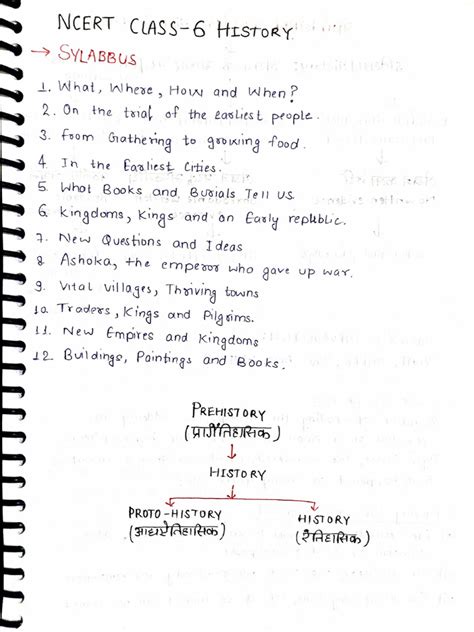 NCERT CLASS-6 HISTORY
→ SYLABBUS
1. What, Where, How and When?
2. On the trial of the earliest people.
3. from Gathering to growing food.
4. In the Earliest Cities.
5. What Books and Burials Tell US.
6. kingdoms, Kings and an Early republic.
7. New Questions and Ideas
8. Ashoka, the emperor who gave up war.
9. Vital villages, Thriving towns
10. Traders, Kings and Pilgrims.
11. New Empires and Kingdoms
12. Buildings, Paintings and Books.
PREHISTORY
(प्रागैतिहासिक)
HISTORY
PROTO-HISTORY HISTORY
(आद्यऐतिहासिक) (ऐतिहासिक)